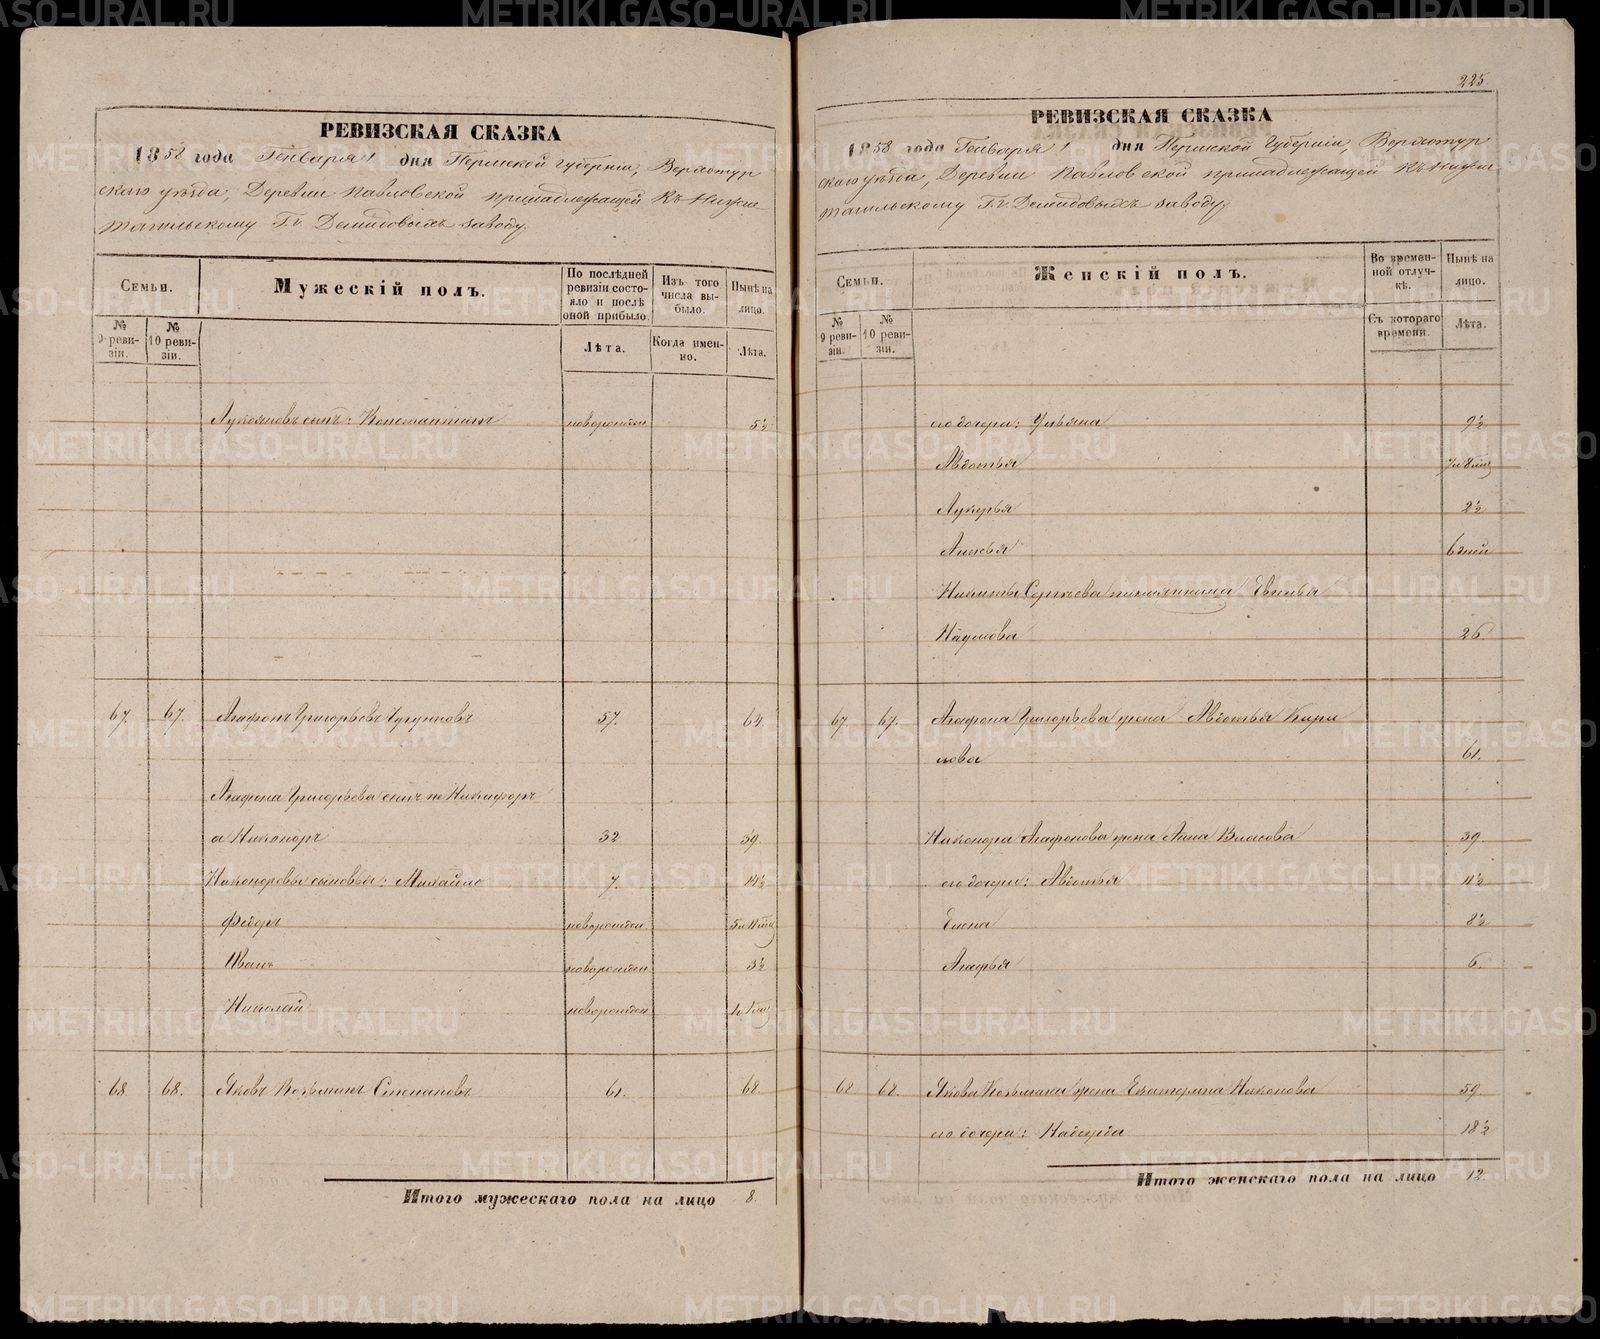 225.
РЕВИЗСКАЯ СКАЗКА
1858 года Генваря 1 дня Пермской Губерніи, Верхотур
скаго уѣзда, Деревни Павловской принадлежащей Къ Нижне
тагильскому Г.г. Демидовыхъ заводу
Семьи.
Мужескій полъ.
По послѣдней ревизіи состояло и послѣ оной прибыло.
Изъ того числа выбыло.
Нынѣ на лицо.
№ 9 ревизіи.
№ 10 ревизіи.
Лѣта.
Когда именно.
Лѣта.
сынъ: Константинъ новорожден 5½
67. 67. Агафонъ Григорьевъ Чугуновъ 57. 64.
Агафона Григорьева сынъ Никаноръ
а Никоноръ 32 39.
Никоноровы сыновья: Михайло 7. 14½
Федоръ новорожден 5 и 11 мѣс
Иванъ новорожден 3½
Николай новорожден
68. 68. Яковъ Козьминъ Степановъ 61. 68.
Итого мужескаго пола на лицо 8.
РЕВИЗСКАЯ СКАЗКА
1858 года Генваря 1 дня Пермской Губерніи, Верхотур
скаго уѣзда, Деревни Павловской принадлежащей Къ Нижне
тагильскому Г.г. Демидовыхъ заводу
Семьи.
Женскій полъ.
Во временной отлучкѣ.
Нынѣ на лицо.
№ 9 ревизіи.
№ 10 ревизіи.
Съ котораго времени.
Лѣта.
его дочери: Ульяна 9½
Авдотья
Лукерья 2½
Анисья
Никиты Сергѣева Евгенья
Наумова 26.
67. 67. Агафона Григорьева жена Авдотья Кири
лова 61.
Никонора Агафонова жена Анна Власова 39.
его дочери: Авдотья 11½
Елена 8½
Агафья 6.
68 68. Якова Козьмина жена Екатерина Никонова 59.
его дочери: Надежда 18½
Итого женскаго пола на лицо 12.
METRIKI.GASO-URAL.RU